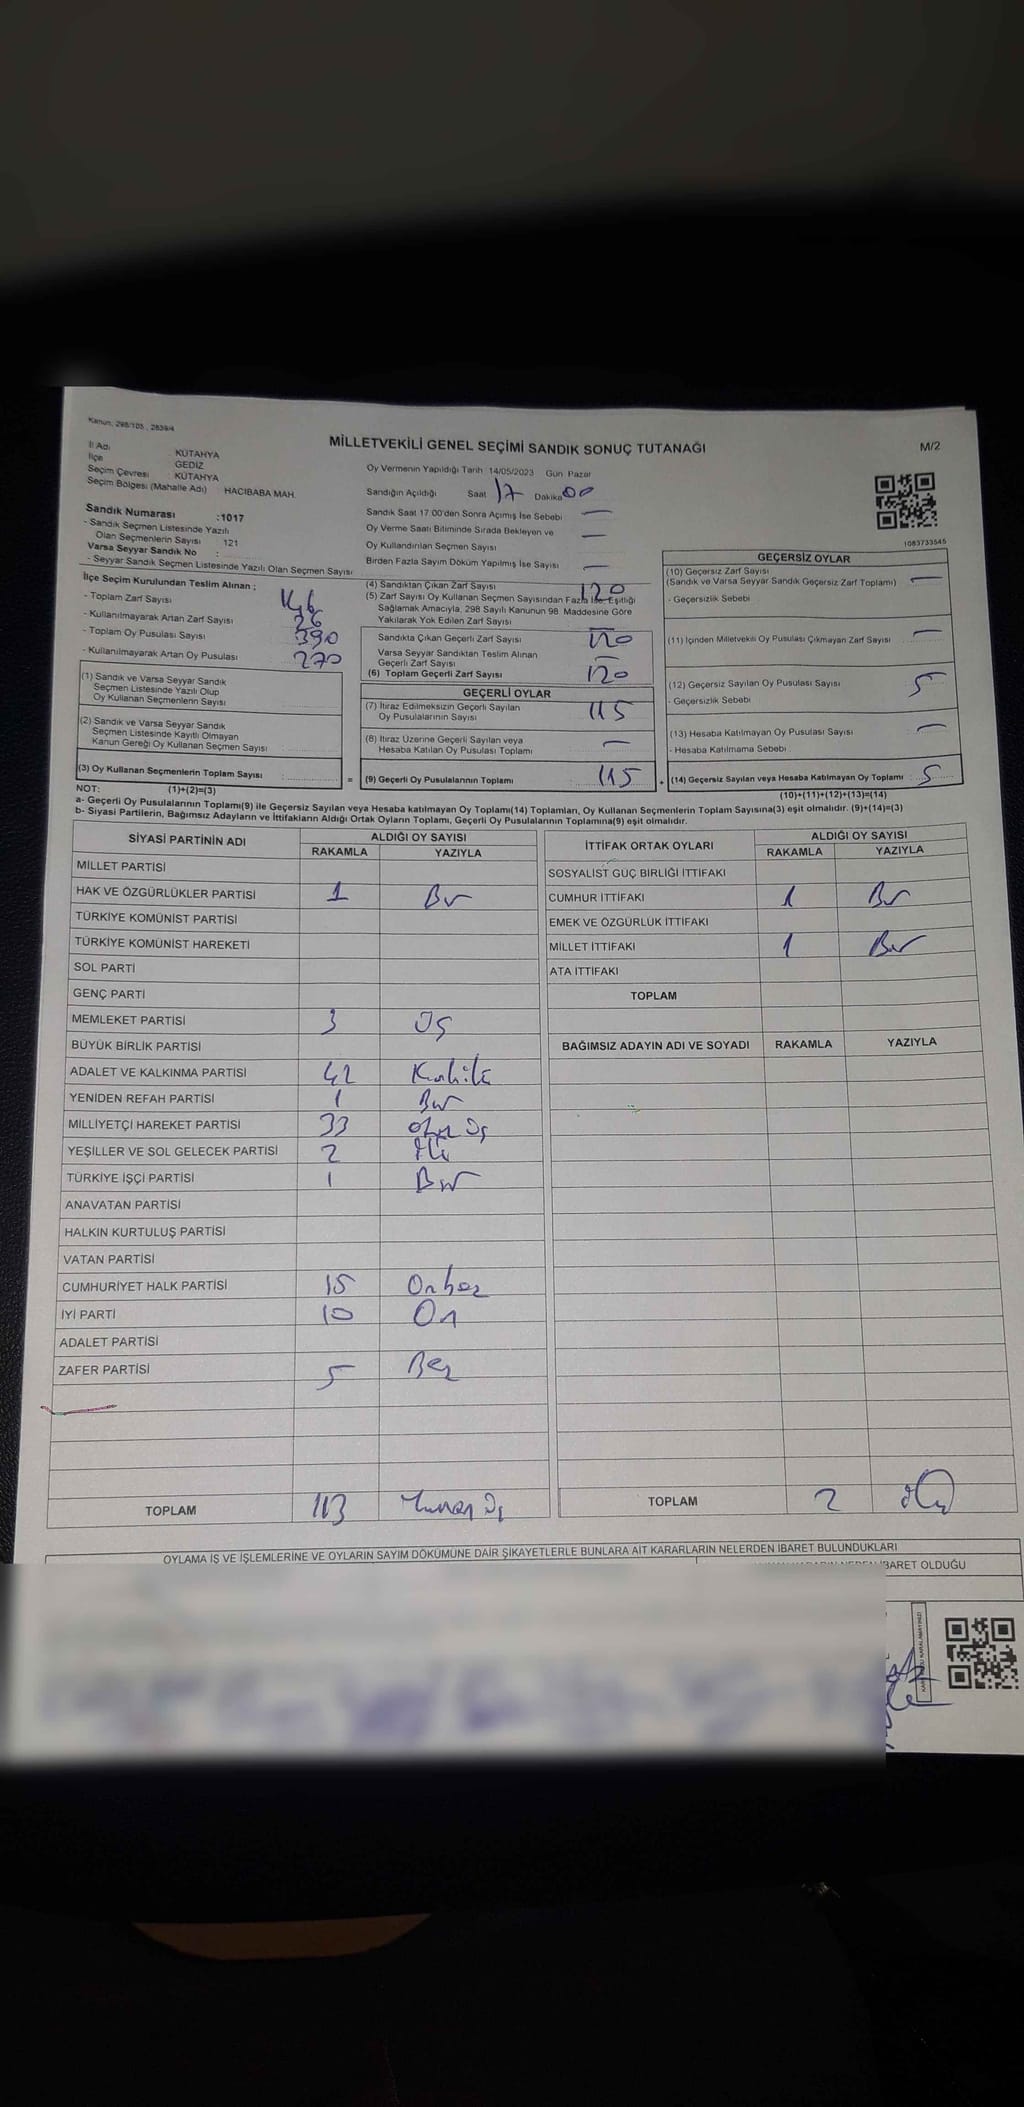 Kanun, 298/105 , 2839/4
MİLLETVEKİLİ GENEL SEÇİMİ SANDIK SONUÇ TUTANAĞI
M/2
İl Adı : KÜTAHYA
İlçe : GEDİZ
Seçim Çevresi : KÜTAHYA
Seçim Bölgesi (Mahalle Adı) : HACIBABA MAH.
Sandık Numarası :1017
- Sandık Seçmen Listesinde Yazılı
Olan Seçmenlerin Sayısı : 121
Varsa Seyyar Sandık No :
- Seyyar Sandık Seçmen Listesinde Yazılı Olan Seçmen Sayısı
Oy Vermenin Yapıldığı Tarih 14/05/2023 Gün Pazar
Sandığın Açıldığı Saat 17 Dakika 00
Sandık Saat 17.00'den Sonra Açımış İse Sebebi —
Oy Verme Saati Bitiminde Sırada Bekleyen ve —
Oy Kullandırılan Seçmen Sayısı
Birden Fazla Sayım Döküm Yapılmış İse Sayısı —
1083733545
İlçe Seçim Kurulundan Teslim Alınan :
- Toplam Zarf Sayısı 146
- Kullanılmayarak Artan Zarf Sayısı 26
- Toplam Oy Pusulası Sayısı 390
- Kullanılmayarak Artan Oy Pusulası 270
(1) Sandık ve Varsa Seyyar Sandık
Seçmen Listesinde Yazılı Olup
Oy Kullanan Seçmenlerin Sayısı
(2) Sandık ve Varsa Seyyar Sandık
Seçmen Listesinde Kayıtlı Olmayan
Kanun Gereği Oy Kullanan Seçmen Sayısı
(3) Oy Kullanan Seçmenlerin Toplam Sayısı :
(4) Sandıktan Çıkan Zarf Sayısı 120
(5) Zarf Sayısı Oy Kullanan Seçmen Sayısından Fazla İse, Eşitliği
Sağlamak Amacıyla, 298 Sayılı Kanunun 98 Maddesine Göre
Yakılarak Yok Edilen Zarf Sayısı —
Sandıkta Çıkan Geçerli Zarf Sayısı 120
Varsa Seyyar Sandıktan Teslim Alınan
Geçerli Zarf Sayısı —
(6) Toplam Geçerli Zarf Sayısı 120
GEÇERLİ OYLAR
(7) İtiraz Edilmeksizin Geçerli Sayılan
Oy Pusulalarının Sayısı 115
(8) İtiraz Üzerine Geçerli Sayılan veya
Hesaba Katılan Oy Pusulası Toplamı —
= (9) Geçerli Oy Pusulalarının Toplamı 115
GEÇERSİZ OYLAR
(10) Geçersiz Zarf Sayısı
(Sandık ve Varsa Seyyar Sandık Geçersiz Zarf Toplamı) —
- Geçersizlik Sebebi
(11) İçinden Milletvekili Oy Pusulası Çıkmayan Zarf Sayısı —
(12) Geçersiz Sayılan Oy Pusulası Sayısı 5
- Geçersizlik Sebebi
(13) Hesaba Katılmayan Oy Pusulası Sayısı —
- Hesaba Katılmama Sebebi
+ (14) Geçersiz Sayılan veya Hesaba Katılmayan Oy Toplamı : 5
NOT: (1)+(2)=(3)
(10)+(11)+(12)+(13)=(14)
a- Geçerli Oy Pusulalarının Toplamı(9) ile Geçersiz Sayılan veya Hesaba katılmayan Oy Toplamı(14) Toplamları, Oy Kullanan Seçmenlerin Toplam Sayısına(3) eşit olmalıdır. (9)+(14)=(3)
b- Siyasi Partilerin, Bağımsız Adayların ve İttifakların Aldığı Ortak Oyların Toplamı, Geçerli Oy Pusulalarının Toplamına(9) eşit olmalıdır.
SİYASİ PARTİNİN ADI ALDIĞI OY SAYISI
RAKAMLA YAZIYLA
MİLLET PARTİSİ
HAK VE ÖZGÜRLÜKLER PARTİSİ 1 Bir
TÜRKİYE KOMÜNİST PARTİSİ
TÜRKİYE KOMÜNİST HAREKETİ
SOL PARTİ
GENÇ PARTİ
MEMLEKET PARTİSİ 3 Üç
BÜYÜK BİRLİK PARTİSİ
ADALET VE KALKINMA PARTİSİ 42 Kırkiki
YENİDEN REFAH PARTİSİ 1 Bir
MİLLİYETÇİ HAREKET PARTİSİ 33 Otuz Üç
YEŞİLLER VE SOL GELECEK PARTİSİ 2 İki
TÜRKİYE İŞÇİ PARTİSİ 1 Bir
ANAVATAN PARTİSİ
HALKIN KURTULUŞ PARTİSİ
VATAN PARTİSİ
CUMHURİYET HALK PARTİSİ 15 Onbeş
İYİ PARTİ 10 On
ADALET PARTİSİ
ZAFER PARTİSİ 5 Beş
TOPLAM 113
İTTİFAK ORTAK OYLARI ALDIĞI OY SAYISI
RAKAMLA YAZIYLA
SOSYALİST GÜÇ BİRLİĞİ İTTİFAKI
CUMHUR İTTİFAKI 1 Bir
EMEK VE ÖZGÜRLÜK İTTİFAKI
MİLLET İTTİFAKI 1 Bir
ATA İTTİFAKI
TOPLAM
BAĞIMSIZ ADAYIN ADI VE SOYADI RAKAMLA YAZIYLA
TOPLAM 2 iki
OYLAMA İŞ VE İŞLEMLERİNE VE OYLARIN SAYIM DÖKÜMÜNE DAİR ŞİKAYETLERLE BUNLARA AİT KARARLARIN NELERDEN İBARET BULUNDUKLARI
İBARET OLDUĞU